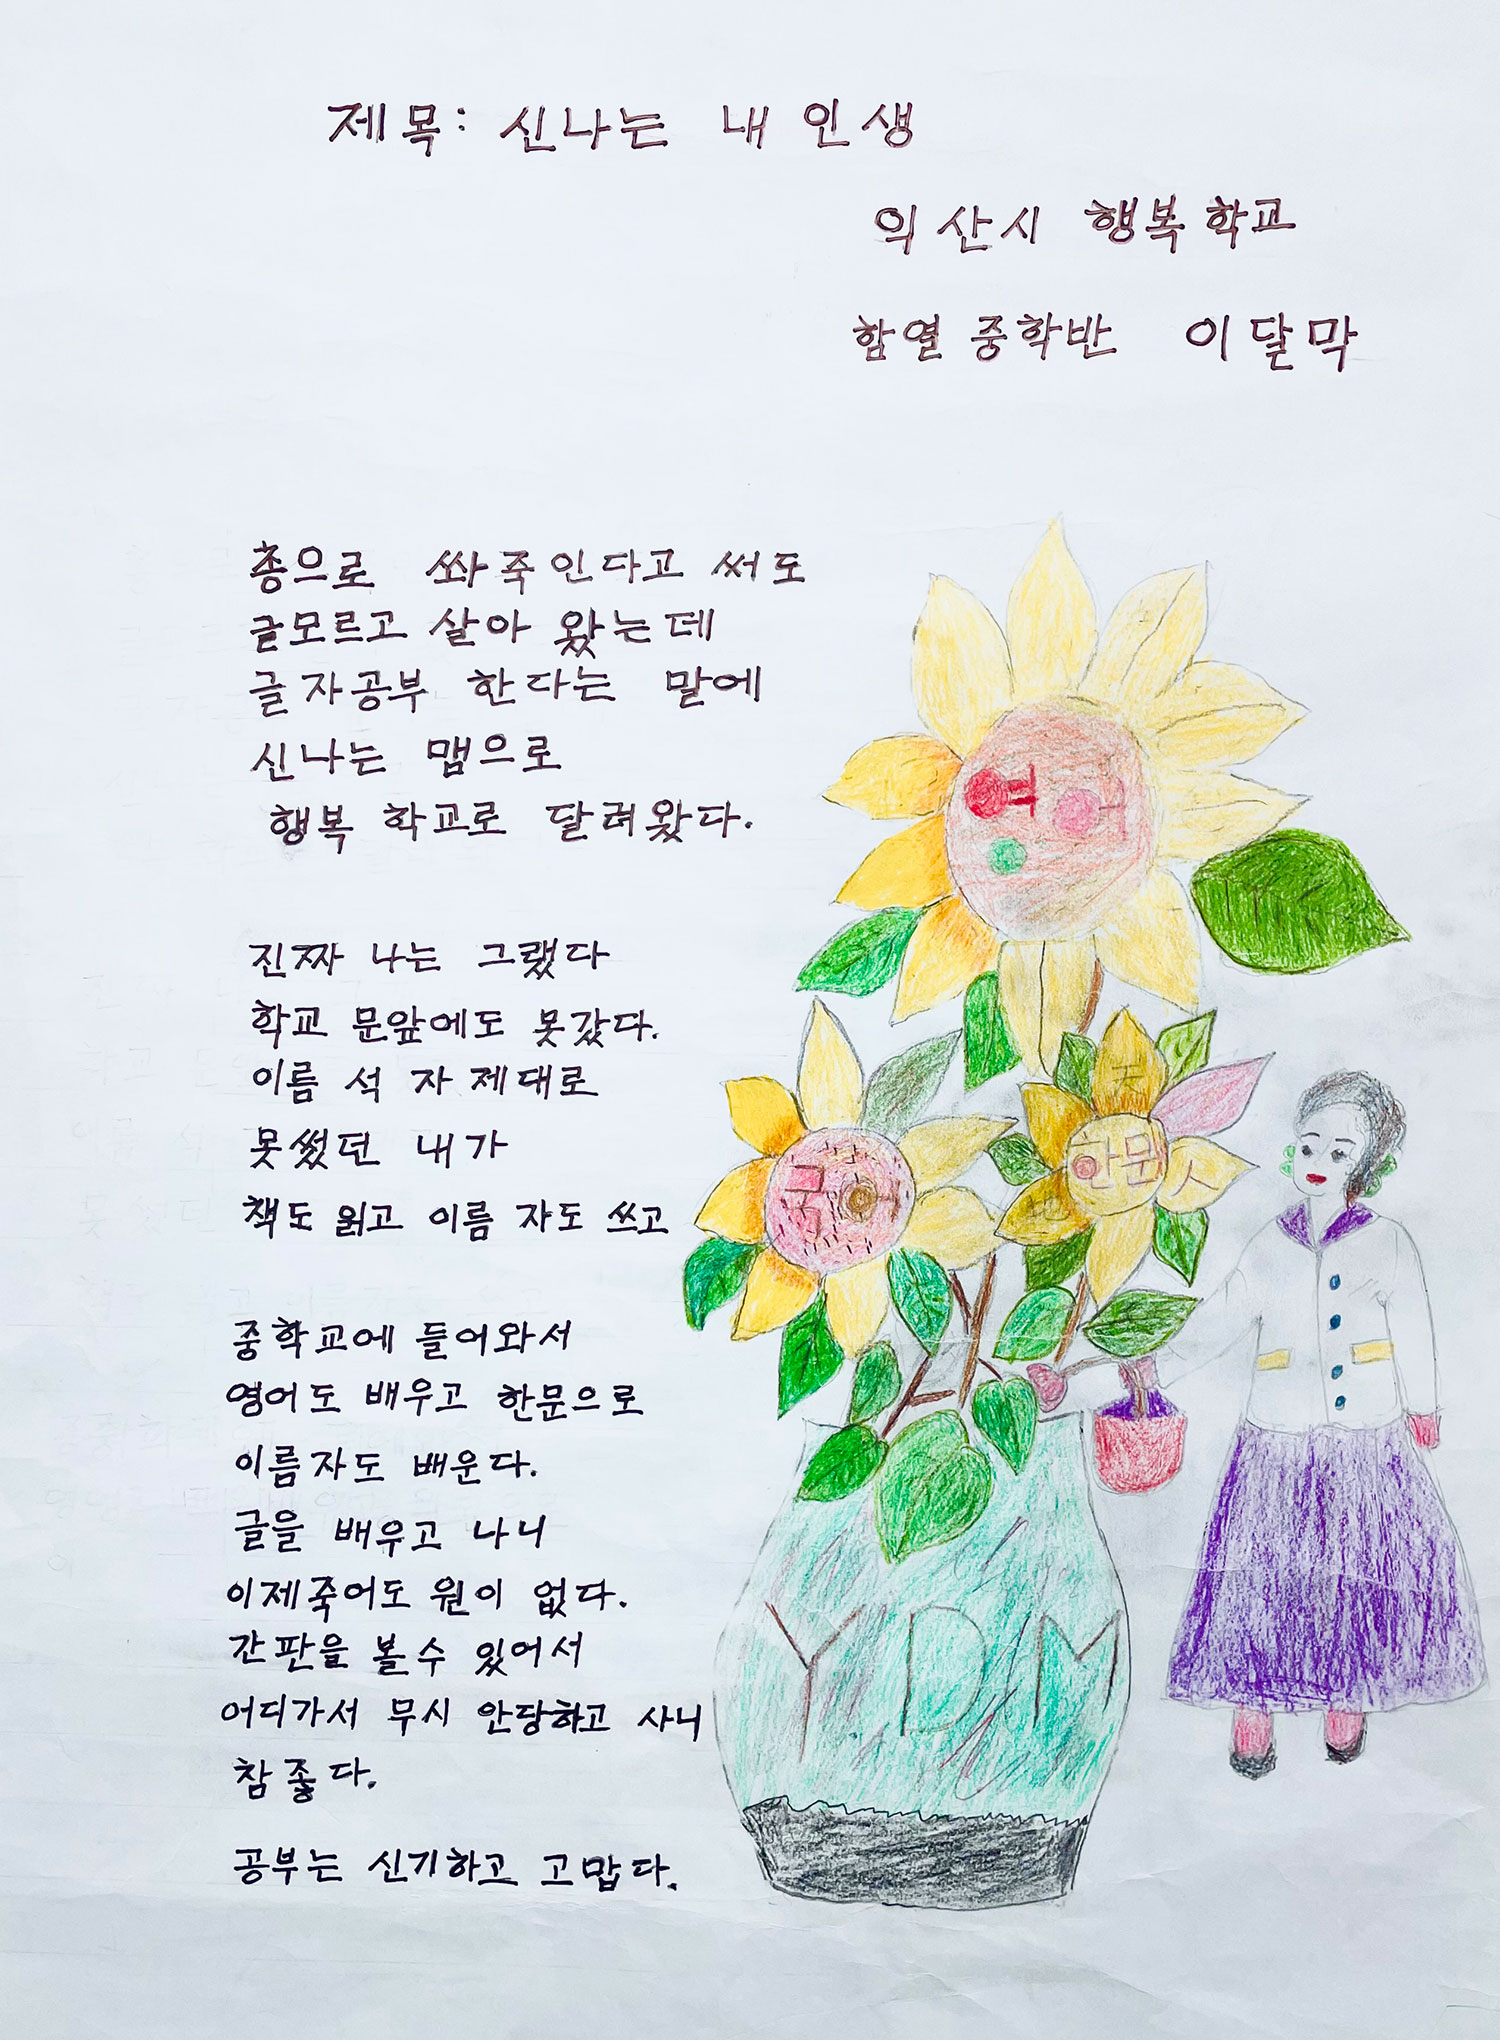 제목: 신나는 내 인생
익산시 행복 학교
함열 중학반 이달막
총으로 쏴죽인다고 써도
글모르고 살아 왔는데
글자공부 한다는 말에
신나는 맵으로
행복 학교로 달려왔다.
진짜 나는 그랬다
학교 문앞에도 못갔다.
이름 석 자 제대로
못썼던 내가
책도 읽고 이름 자도 쓰고
중학교에 들어와서
영어도 배우고 한문으로
이름자도 배운다.
글을 배우고 나니
이제죽어도 원이 없다.
간판을 볼수 있어서
어디가서 무시 안당하고 사니
참좋다.
공부는 신기하고 고맙다.
영어
국어
天
한문
地
人
YDM